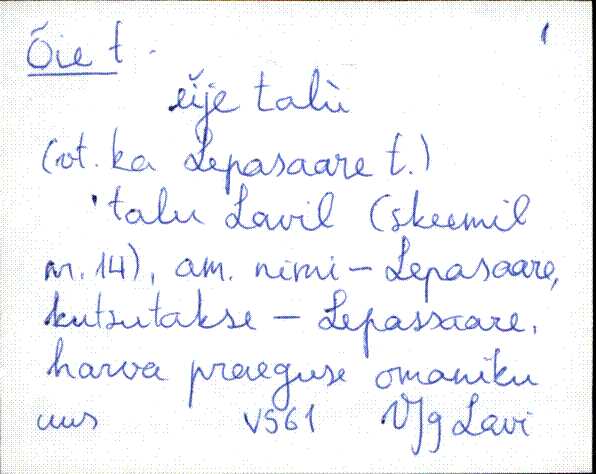 Õie t. 1
eìje talù
(vt. ka Lepasaare t.)
'talu Lavil (skeemil
nr. 14), am. nimi - Lepasaare,
kutsutakse - Lepassaare,
harva praeguse omaniku
uus VS61 VJg Lavi